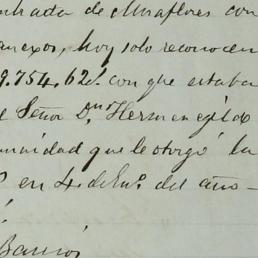 de Miraflores con
anexos, hoy solo reconocen
9.754,,62 d. con que estaba
Señor Dn. Hermenegildo
que le otorgó la
en 4 de En.º del año
Barrios